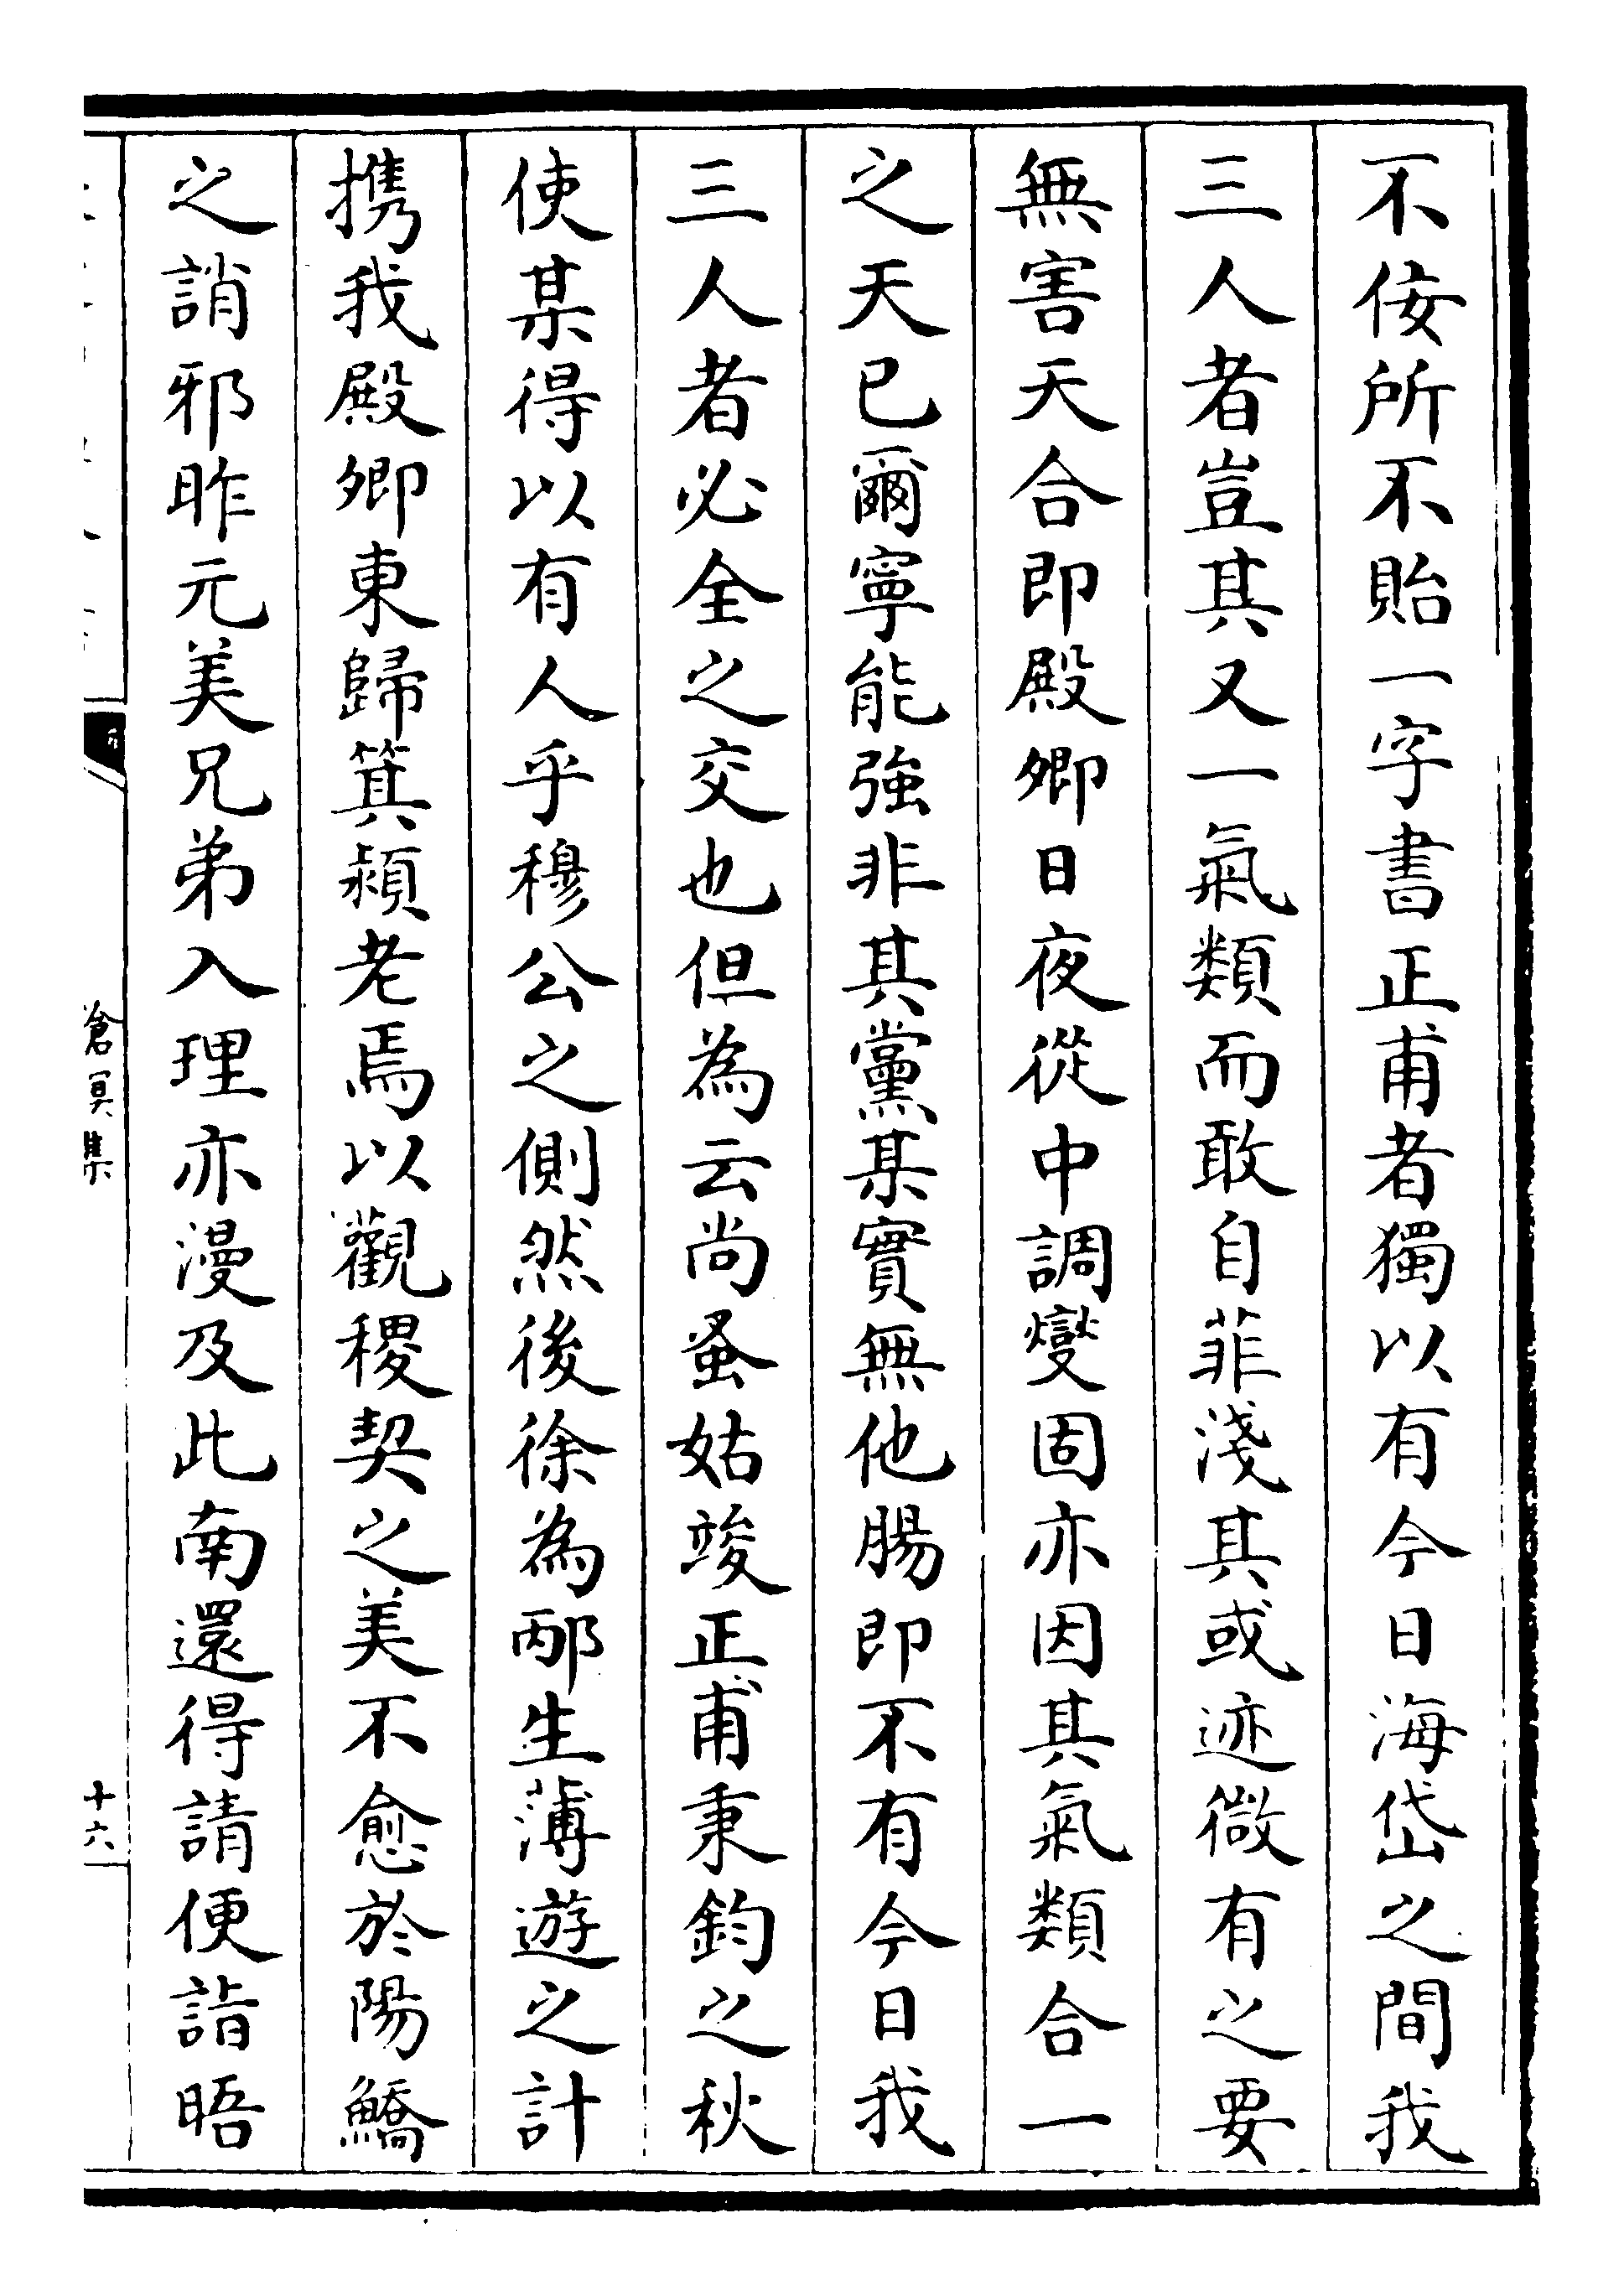 不佞所不貽一字書正甫者獨以有今日海岱之間我
三人者豈其又一氣類而敢自菲淺其或迹微有之要
無害天合即殿卿日夜從中調燮固亦因其氣類合一
之天已爾寧能強非其黨某實無他腸即不有今日我
三人者必全之交也但為云尚蚤姑竣正甫秉鈞之秋
使某得以有人乎穆公之側然後徐為邴生薄遊之計
携我殿卿東歸箕潁老焉以觀稷契之美不愈於陽鱎
之誚邪昨元美兄弟入理亦漫及此南還得請便詣晤
滄溟集
十六